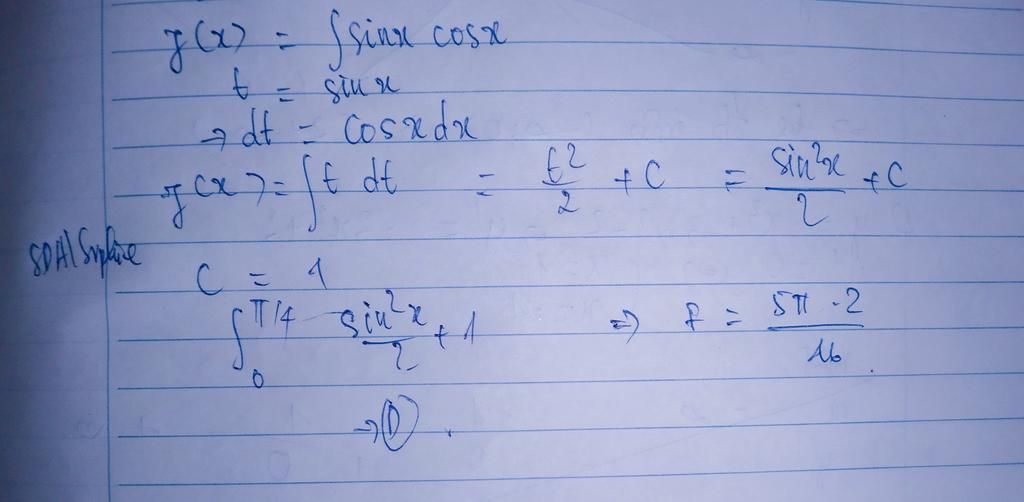 y(x) = ∫sinx cosx
t = sin x
→ dt = cosx dx
y(x) = ∫t dt = t²/2 + C = sin²x/2 + C
C = 1
∫₀^π/4 sin²x/2 + 1 ⇒ f = 5π - 2/16
→ Ⓓ.